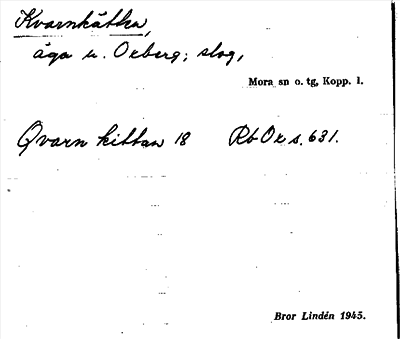 Kvarnkåtka,
äga u. Oxberg; slog,
Mora sn o. tg, Kopp. l.
Qvarn kittan 18 Rb Ox s. 631.
Bror Lindén 1945.